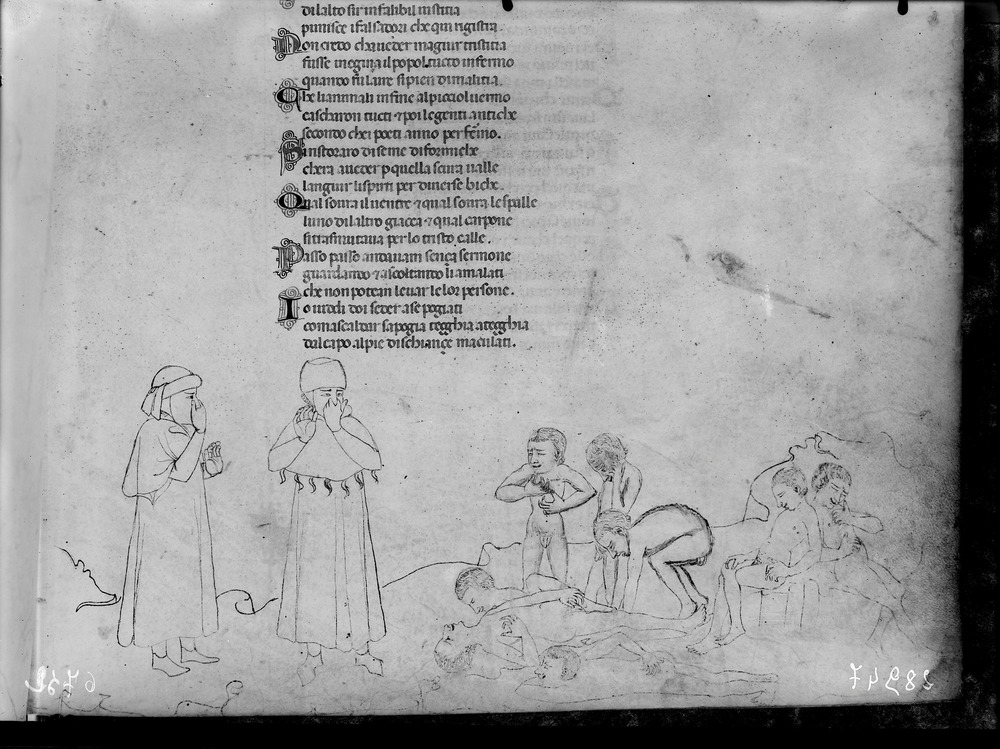 di lalto sir infalibil iustitia
punisce i falsadori che qui rigistra.
Non credo cha ueder magiur tristitia
fusse inegina il popol tucto infermo
quando fu laire si pien di malitia.
Che lianimali infine al picciol uermo
cascharon tucti ⁊ poi le genti antiche
secondo chei poeti anno per fermo.
Si ristoraro di seme di formiche
chera aueder p quella scura ualle
languir lispirti per diuerse biche.
Qual soura il uentre ⁊ qual soura le spalle
luno di laltro giacea ⁊ qual carpone
si trasmutaua per lo tristo calle.
Passo passo andauam sença sermone
guardando ⁊ ascoltando li amalati
che non potean leuar le lor persone.
Io uiddi doi seder a se pogiati
coma scaldar sapogia tegghia a tegghia
dal capo al pie di schiançe maculati.
28947